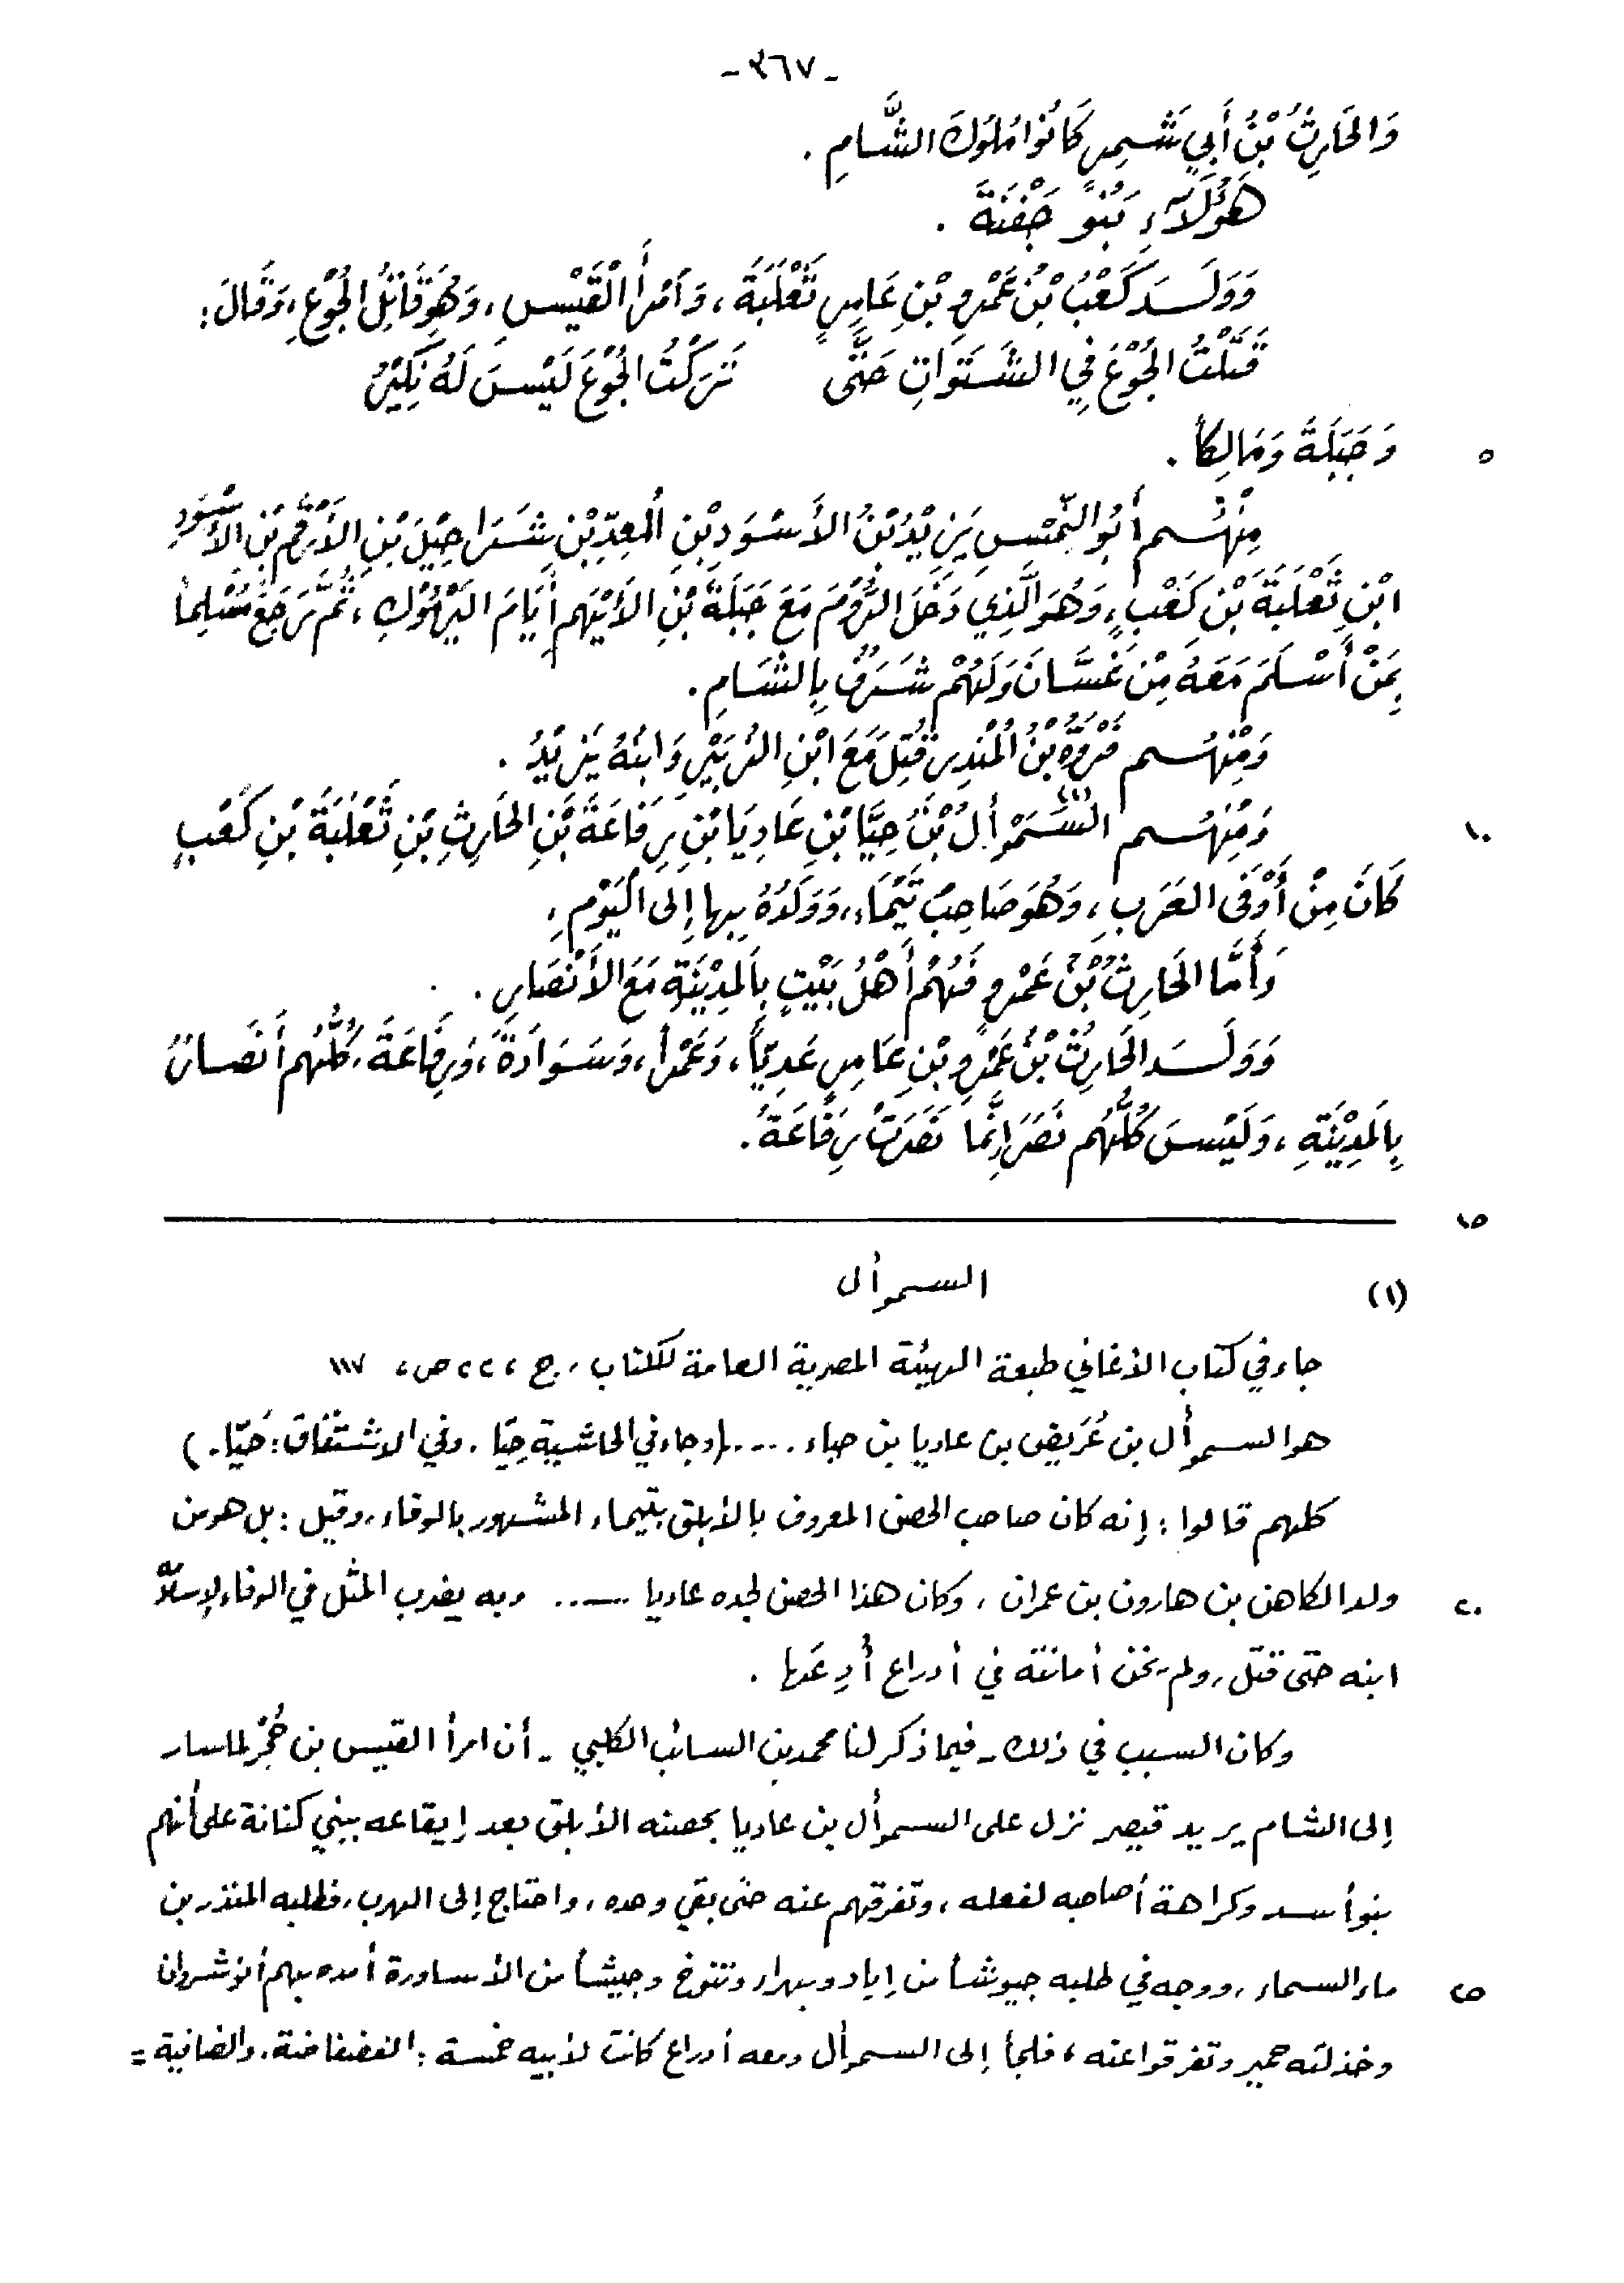 - ٣٦٧ -
وَالحَارِثُ بْنُ أَبِي شَمِرٍ كَانُوا مُلُوكَ الشَّامِ .
هَؤُلَاءِ بَنُو جَفْنَةَ .
وَوَلَدَ كَعْبُ بْنُ عَمْرِو بْنِ عَامِرٍ ثَعْلَبَةَ ، وَامْرَأَ الْقَيْسِ ، وَهُوَ قَاتِلُ الجُوْعِ ، وَقَالَ :
قَتَلْتُ الجُوْعَ فِي الشَتَوَاتِ حَتَّى تَرَكْتُ الجُوْعَ لَيْسَ لَهُ نَكِيْرُ
٥ وَجَبَلَةَ وَمَالِكاً .
مِنْهُم أَبُو النِّمْسِ يَزِيْدُ بْنُ الأَسْوَدِ بْنِ المعِدِّ بْنِ شَرَاحِيْلَ بْنِ الأَرْقَمِ بْنِ الأَسْوَدِ
ابْنِ ثَعْلَبَةَ بْنِ كَعْبٍ ، وَهُوَ الَّذِي دَخَلَ الرُّوْمَ مَعَ جَبَلَةَ بْنِ الأَيْهَمِ أَيَامَ اليَرْمُوْكِ ، ثُمَّ رَجَعَ مُسْلِماً
بِمَنْ أَسْلَمَ مَعَهُ مِنْ غَسَّانَ وَلَهُمْ شَرَفٌ بِالشَامِ .
وَمِنْهُم فَرْوَةُ بْنُ المُنْذِرِ قُتِلَ مَعَ ابْنِ الزُبَيْرِ وَابْنُهُ يَزِيْدُ .
١٠ وَمِنْهُم السَّمَوْأَلُ (١) بْنُ حِيَّا بْنِ عَادِيَا بْنِ رِفَاعَةَ بْنِ الحَارِثِ بْنِ ثَعْلَبَةَ بْنِ كَعْبٍ
كَانَ مِنْ أَوْفَى العَرَبِ ، وَهُوَ صَاحِبُ تَيْمَاءَ ، وَوَلَدُهُ بِها إِلى اليَوْمِ ،
وَأَمَّا الحَارِثُ بْنُ عَمْرٍو فَهُمْ أَهْلُ بَيْتٍ بِالَمدِيْنَةِ مَعَ الأَنْصَارِ .
وَوَلَدَ الحَارِثُ بْنُ عَمْرِو بْنِ عَامِرٍ عَدِيّاً ، وَعَمْراً ، وَسَوَادَةَ ، وَرِفَاعَةَ ، كُلُّهُم أَنْصَارٌ
بِالمَدِيْنَةِ ، وَلَيْسَ كُلُّهُم نَصَرَ إِنَّمَا نَصَرَتْ رِفَاعَةُ .
١٥
(١) السموأل
جاء في كتاب الأغاني طبعة الهيئة المصرية العامة للكتاب ، ج ، ٢٢ ص ، ١١٧
هو السموأل بن عُرَيض بن عاديا بن حباء ..... (وجاء في الحاشية حِيّا . وفي الاشتقاق : حَيّا .)
كلهم قالوا : إنه كان صاحب الحصن المعروف بالأبلق بتيماء المشهور بالوفاء ، وقيل : بل هو من
٢٠ ولد الكاهن بن هارون بن عمران ، وكان هذا الحصن لجده عاديا ..... وبه يضرب المثل في الوفاء لإسلامه
ابنه حتى قتل ، ولم يخن أمانته في أدراع أُدِعَها .
وكان السبب في ذلك ـ فيما ذكر لنا محمد بن السائب الكلبي ـ أن امرأ القيس بن حُجْر لما سار
إلى الشام يريد قيصر نزل على السموأل بن عاديا بحصنه الأبلق بعد إيقاعه ببني كنانة على أنهم
بنو أسد وكراهة أصاحبه لفعله ، وتفرقهم عنه حتى بقي وحده ، واحتاج إلى الهرب ، فطلبه المنذر بن
٢٥ ماء السماء ، ووجه في طلبه جيوشاً من إياد وبهراء وتنوخ وجيشاً من الأساورة أمده بهم أنوشروان
وخذلته حمير وتفرقوا عنه ، فلجأ إلى السموأل ومعه أدراع كانت لأبيه خمسة : الفضفاضة . والضافية =